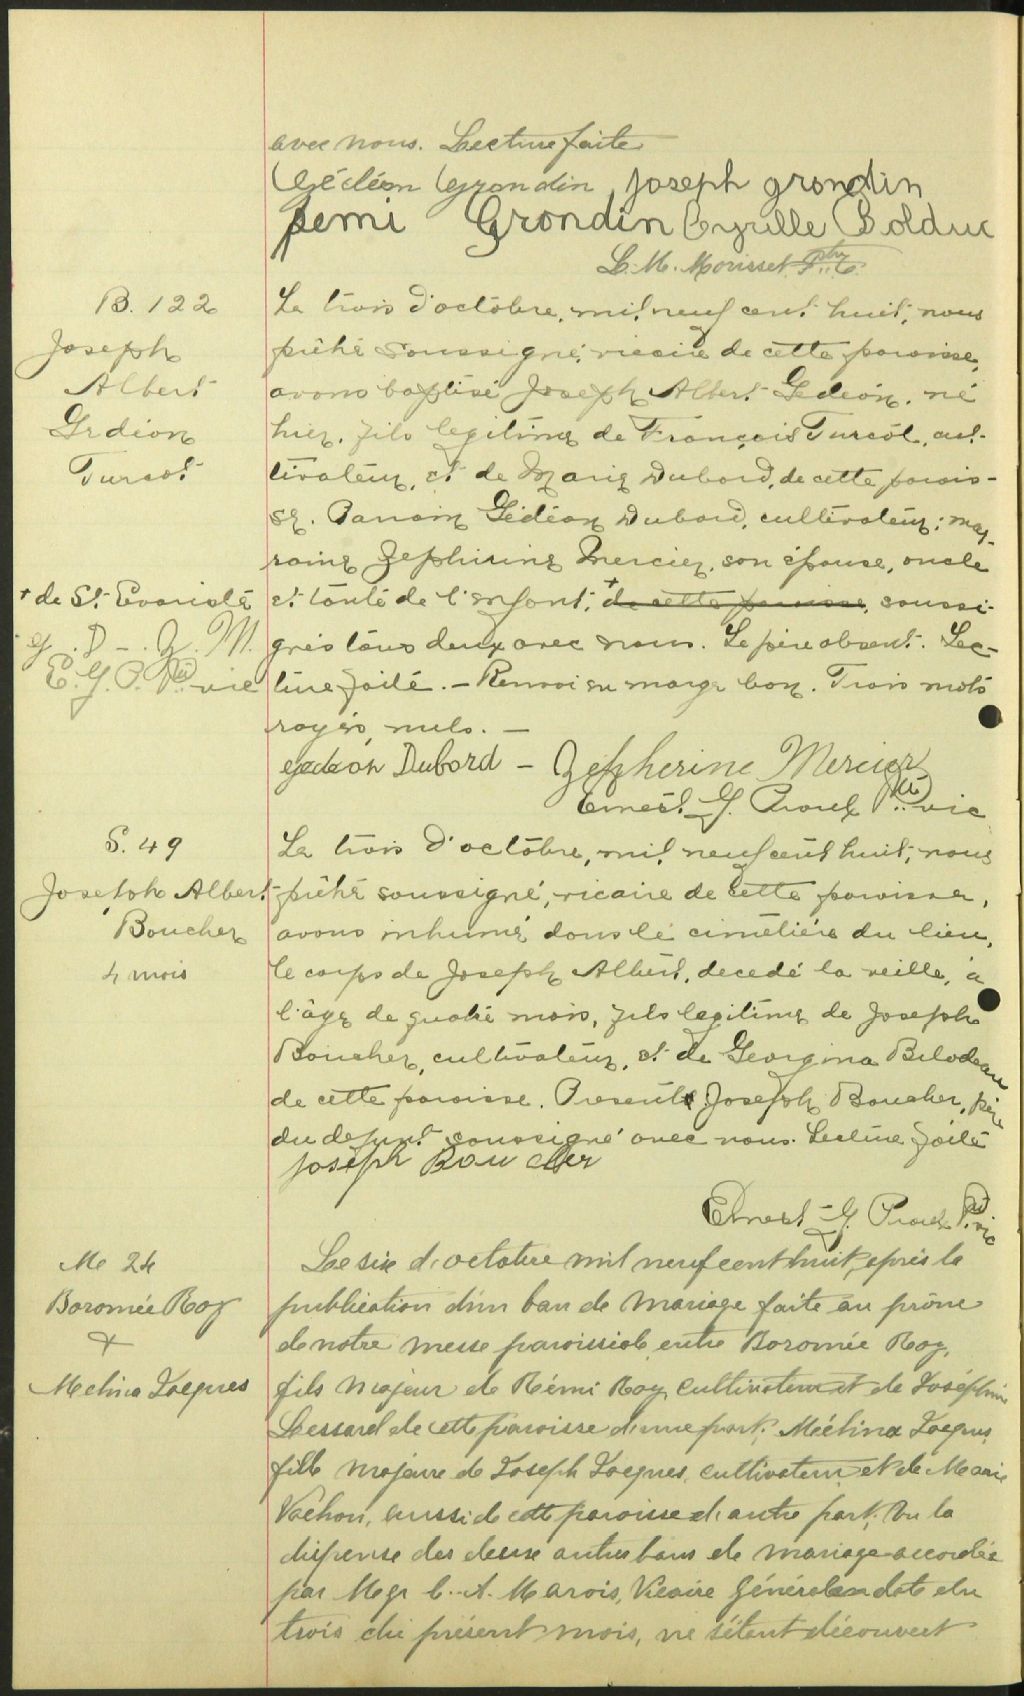 avec nous. Lecture faite
Gédéon Grondin Joseph grondin
remi Grondin Cyrille Bolduc
L. M. Morisset Ptre C.
B. 122
Joseph
Albert
Gedéon
Turcot
Le trois d'octobre, mil neuf cent huit, nous
prêtre soussigné, vicaire de cette paroisse,
avons baptisé Joseph Albert Gedéon, né
hier, fils legitime de François Turcot, cul-
tivateur, et de Marie Dubord, de cette parois-
se. Parrain Gédéon Dubord, cultivateur; mar-
raine Zephirine Mercier, son épouse, oncle
et tante de l'enfant, + de cette paroisse, soussi-
gnés tous deux avec nous. Le père absent. Lec-
ture faite. - Renvoi en marge bon. Trois mots
rayés, nuls. -
+ de St. Evariste
G. D - . Z. M.
E. G. P. Ptre vic
Gedeon Dubord - Zepherine Mercier
Ernest G. Proulx Ptre vic
S. 49
Joseph Albert
Boucher
4 mois
Le trois d'octobre, mil neuf cent huit, nous
prêtre soussigné, vicaire de cette paroisse,
avons inhumé dans le cimetière du lieu,
le corps de Joseph Albert, decedé la veille, à
l'âge de quatre mois, fils legitime de Joseph
Boucher, cultivateur, et de Georgina Bilodeau
de cette paroisse. Present Joseph Boucher, père
du defunt soussigné avec nous. Lecture faite
Joseph Boucher
Ernest G. Proulx Ptre vic
M 24
Boromée Roy
&
Melina Jacques
Le six d'octobre mil neuf cent huit, après la
publication d'un ban de mariage faite au prône
de notre messe paroissiale entre Boromée Roy,
fils majeur de Rémi Roy, cultivateur et de Joséphine
Lessard de cette paroisse d'une part; Mélina Jacques
fille majeure de Joseph Jacques, cultivateur et de Marie
Vachon, aussi de cette paroisse d'autre part; Vu la
dispense des deux autres bans de mariage accordée
par Mgr C. A. Marois, Vicaire Général en date du
trois du présent mois, ne s'étant découvert